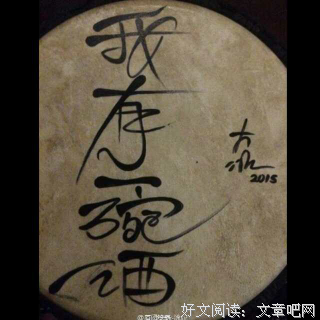 我有一碗酒
大冰
2015
好文阅读：文章吧网